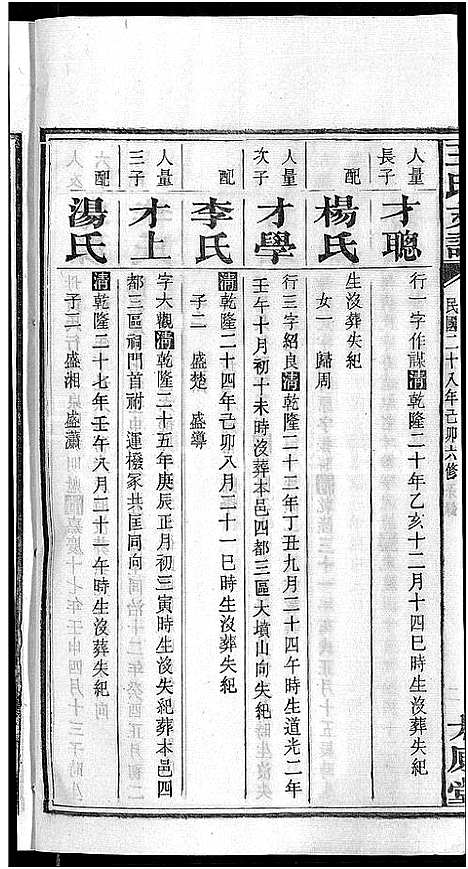 民國二十八年己卯六修
人量長子
才聰
行一字作謀清乾隆二十年乙亥十二月十四巳時生沒葬失紀
配
楊氏
生沒葬失紀
女一 歸周
人量次子
才學
行三字紹良清乾隆二十二年丁丑九月二十四午時生道光二年
壬午十月初十未時沒葬本邑四都三區大墳山向失紀
配
李氏
清乾隆二十四年己卯八月二十一巳時生沒葬失紀
子二 盛楚 盛導
人量三子
才上
字大觀清乾隆二十五年庚辰正月初三寅時生沒失紀葬本邑四
都三區祠門首祔申運撥冢共匡同向
配
湯氏
清乾隆二十七年壬午八月二十一午時生沒葬失紀
子二 盛湘 盛藩